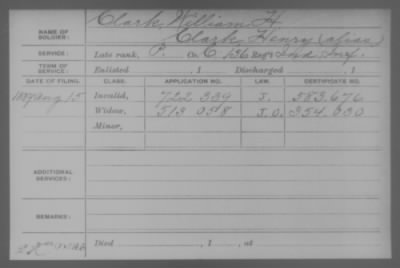 NAME OF SOLDIER: Clark, William H.
Clark, Henry (alias)
SERVICE: Late rank, P. Co. C, 136 Reg't Ind Inf.
TERM OF SERVICE: Enlisted , 1 Discharged , 1
DATE OF FILING. CLASS. APPLICATION NO. LAW. CERTIFICATE NO.
Aug 15 Invalid, 722 339 J. 583.676
Widow, 513 058 J.O. 354.030
Minor,
ADDITIONAL SERVICES:
REMARKS:
Died , 1 , at